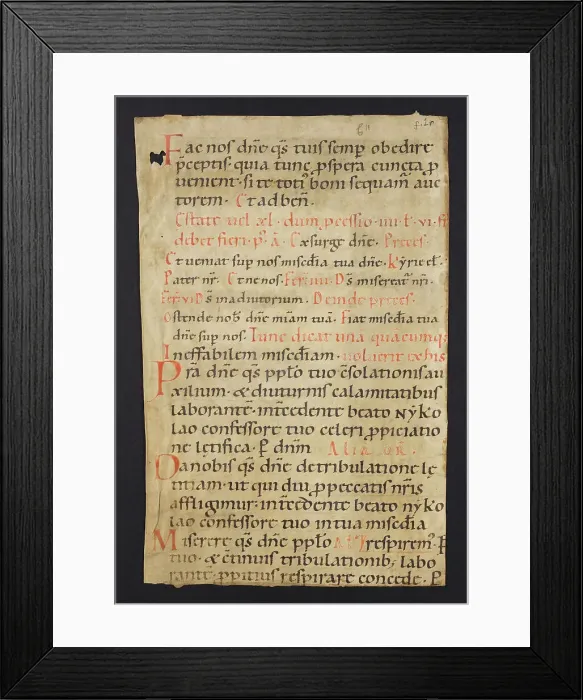 f. 1r
Fac nos dn̄e q̄s tuis semp̱ obedire
p̄ceptis· quia tunc ꝓspera cuncta ꝓ
uenient· si te toti᾽ boni sequam̄ auc
torem· Et ad ben̄·
Estate uel
debet fieri· Exsurge dn̄e· Preces·
Et ueniat sup̱ nos miscd̄ia tua dn̄e· Kyrie el̄·
Pater nr̄· Et ne nos· D̄s misereat᾽ nr̄i·
D̄s in adiutorium· Deinde preces·
Ostende nob̄ dn̄e miam̄ tuā· Fiat miscd̄ia tua
dn̄e sup̱ nos· Tunc dicat una quacumq;
Ineffabilem miscd̄iam· uoluerit ex his
Pr̄a dn̄e q̄s pp̄lo tuo c̄solationis au
xilium· & diuturnis calamitatibus
laborante· intc̄edente beato nẏko
lao confessore tuo celeri ꝓpiciatio
ne lętifica· P̱ dn̄m Alia or̄·
Da nobis q̄s dn̄e de tribulatione lę
titiam· ut qui diu ꝓ peccatis nr̄is
affligimur· intc̄edente beato nẏko
lao confessore tuo in tua miscd̄ia
respirem᾽· P̱
Miserere q̄s dn̄e pp̄lo
tuo· & c̄tinuis tribulationib; labo
rante ꝓpitius respirare concede· P̱